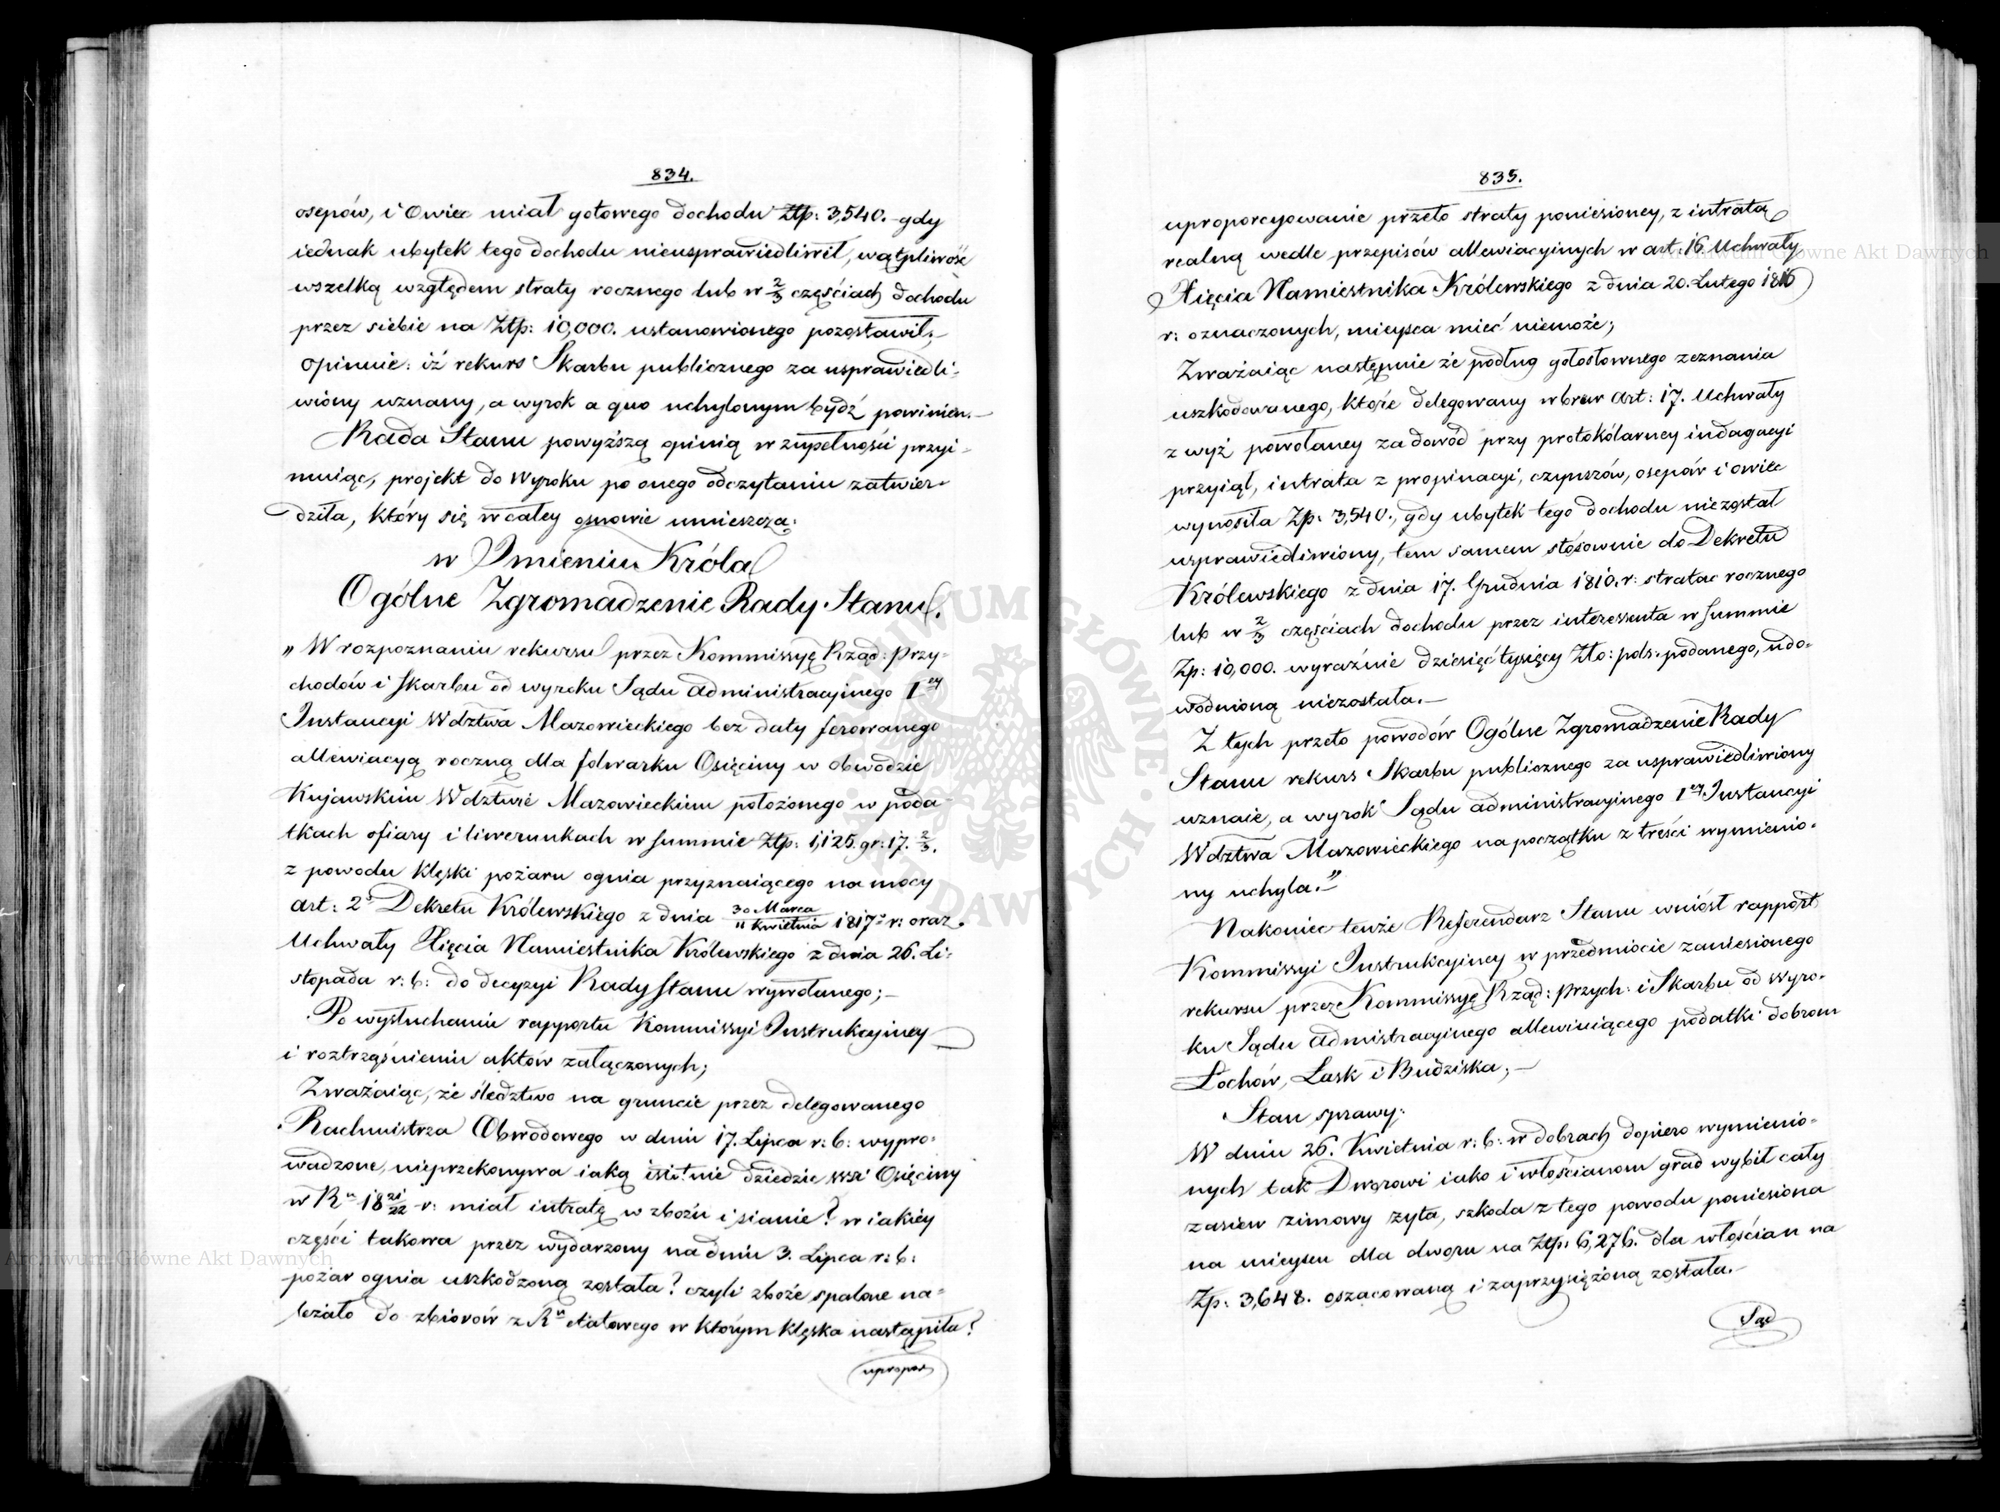 834.
osepów, i owiec miał gotowego dochodu Złp: 3,540. gdy
iednak ubytek tego dochodu nieusprawiedliwił, wątpliwość
wszelką względem straty rocznego lub w 2/3 częściach dochodu
przez siebie na Złp: 10,000. ustanowionego pozostawił;
opiniuie: iż rekurs Skarbu publicznego za usprawiedli-
wiony uznany, a wyrok a quo uchylonym bydź powinien.—
Rada Stanu powyższą opinią w zupełności przyi-
muiąc, projekt do Wyroku po onego odczytaniu zatwier-
dziła, który się w całey osnowie umieszcza:
w Imieniu Króla
Ogólne Zgromadzenie Rady Stanu.
„W rozpoznaniu rekursu przez Kommissyę Rząd: Przy-
chodów i Skarbu od wyroku Sądu Administracyinego Iey
Instancyi Wdztwa Mazowieckiego bez daty ferowanego
allewiacyą roczną dla folwarku Osięciny w obwodzie
Kujawskim Wdztwie Mazowieckim położonego w poda-
tkach ofiary i liwerunkach w summie Złp: 1,125. gr: 17. 2/3.
z powodu klęski pożaru ognia przyznaiącego na mocy
art: 2o Dekretu Królewskiego z dnia 30 Marca/11 Kwietnia 1817o r: oraz
Uchwały Xięcia Namiestnika Królewskiego z dnia 26. Li-
stopada r: b: do decyzyi Rady Stanu wywołanego;—
Po wysłuchaniu rapportu Kommissyi Instrukcyiney
i roztrząśnieniu aktów załączonych;
Zważaiąc, że śledztwo na gruncie przez delegowanego
Rachmistrza Obwodowego w dniu 17. Lipca r: b: wypro-
wadzone, nieprzekonywa iaką istotnie dziedzic wsi Osięciny
w Ru 18 21/22 r: miał intratę w zbożu i sianie? w iakiey
części takowa przez wydarzony na dniu 3. Lipca r: b:
pożar ognia uszkodzoną została? czyli zboże spalone na-
leżało do zbiorów z Ru etatowego w którym klęska nastąpiła?
upropor
835.
uproporcyowanie przeto straty poniesioney, z intratą
realną wedle przepisów allewiacyinych w art: 16. Uchwały
Xięcia Namiestnika Królewskiego z dnia 20. Lutego 1816
r: oznaczonych, mieysca mieć niemoże;
Zważaiąc następnie że podług gołosłownego zeznania
uszkodowanego, które delegowany wbrew art: 17. Uchwały
z wyż powołaney za dowód przy protokólarney indagacyi
przyiął, intrata z propinacyi, czynszów, osepów i owiec
wynosiła Zp: 3,540., gdy ubytek tego dochodu niezostał
usprawiedliwiony, tem samem stósownie do Dekretu
Królewskiego z dnia 17. Grudnia 1810. r: strata rocznego
lub w 2/3 częściach dochodu przez interessenta w summie
Zp: 10,000. wyraźnie dziesięć tysięcy Zło: pols: podanego, udo-
wodnioną niezostała.—
Z tych przeto powodów Ogólne Zgromadzenie Rady
Stanu rekurs Skarbu publicznego za usprawiedliwiony
uznaie, a wyrok Sądu administracyinego Iey Instancyi
Wdztwa Mazowieckiego na początku z treści wymienio-
ny uchyla.—”
Nakoniec tenże Referendarz Stanu wniósł rapport
Kommissyi Instrukcyiney w przedmiocie zaniesionego
rekursu przez Kommissyę Rząd: Przych: i Skarbu od Wyro-
ku Sądu Admistracyinego allewiuiącego podatki dobrom
Łochów, Lask i Budziska;—
Stan sprawy:
W dniu 26. Kwietnia r: b: w dobrach dopiero wymienio-
nych tak Dworowi iako i włościanom grad wybił cały
zasiew zimowy żyta, szkoda z tego powodu poniesiona
na mieyscu dla dworu na Złp: 6,276. dla włościan na
Zp: 3,648. oszacowaną i zaprzysiężoną została.—
Sąd
Archiwum Główne Akt Dawnych
Archiwum Główne Akt Dawnych
ARCHIWUM GŁÓWNE AKT DAWNYCH